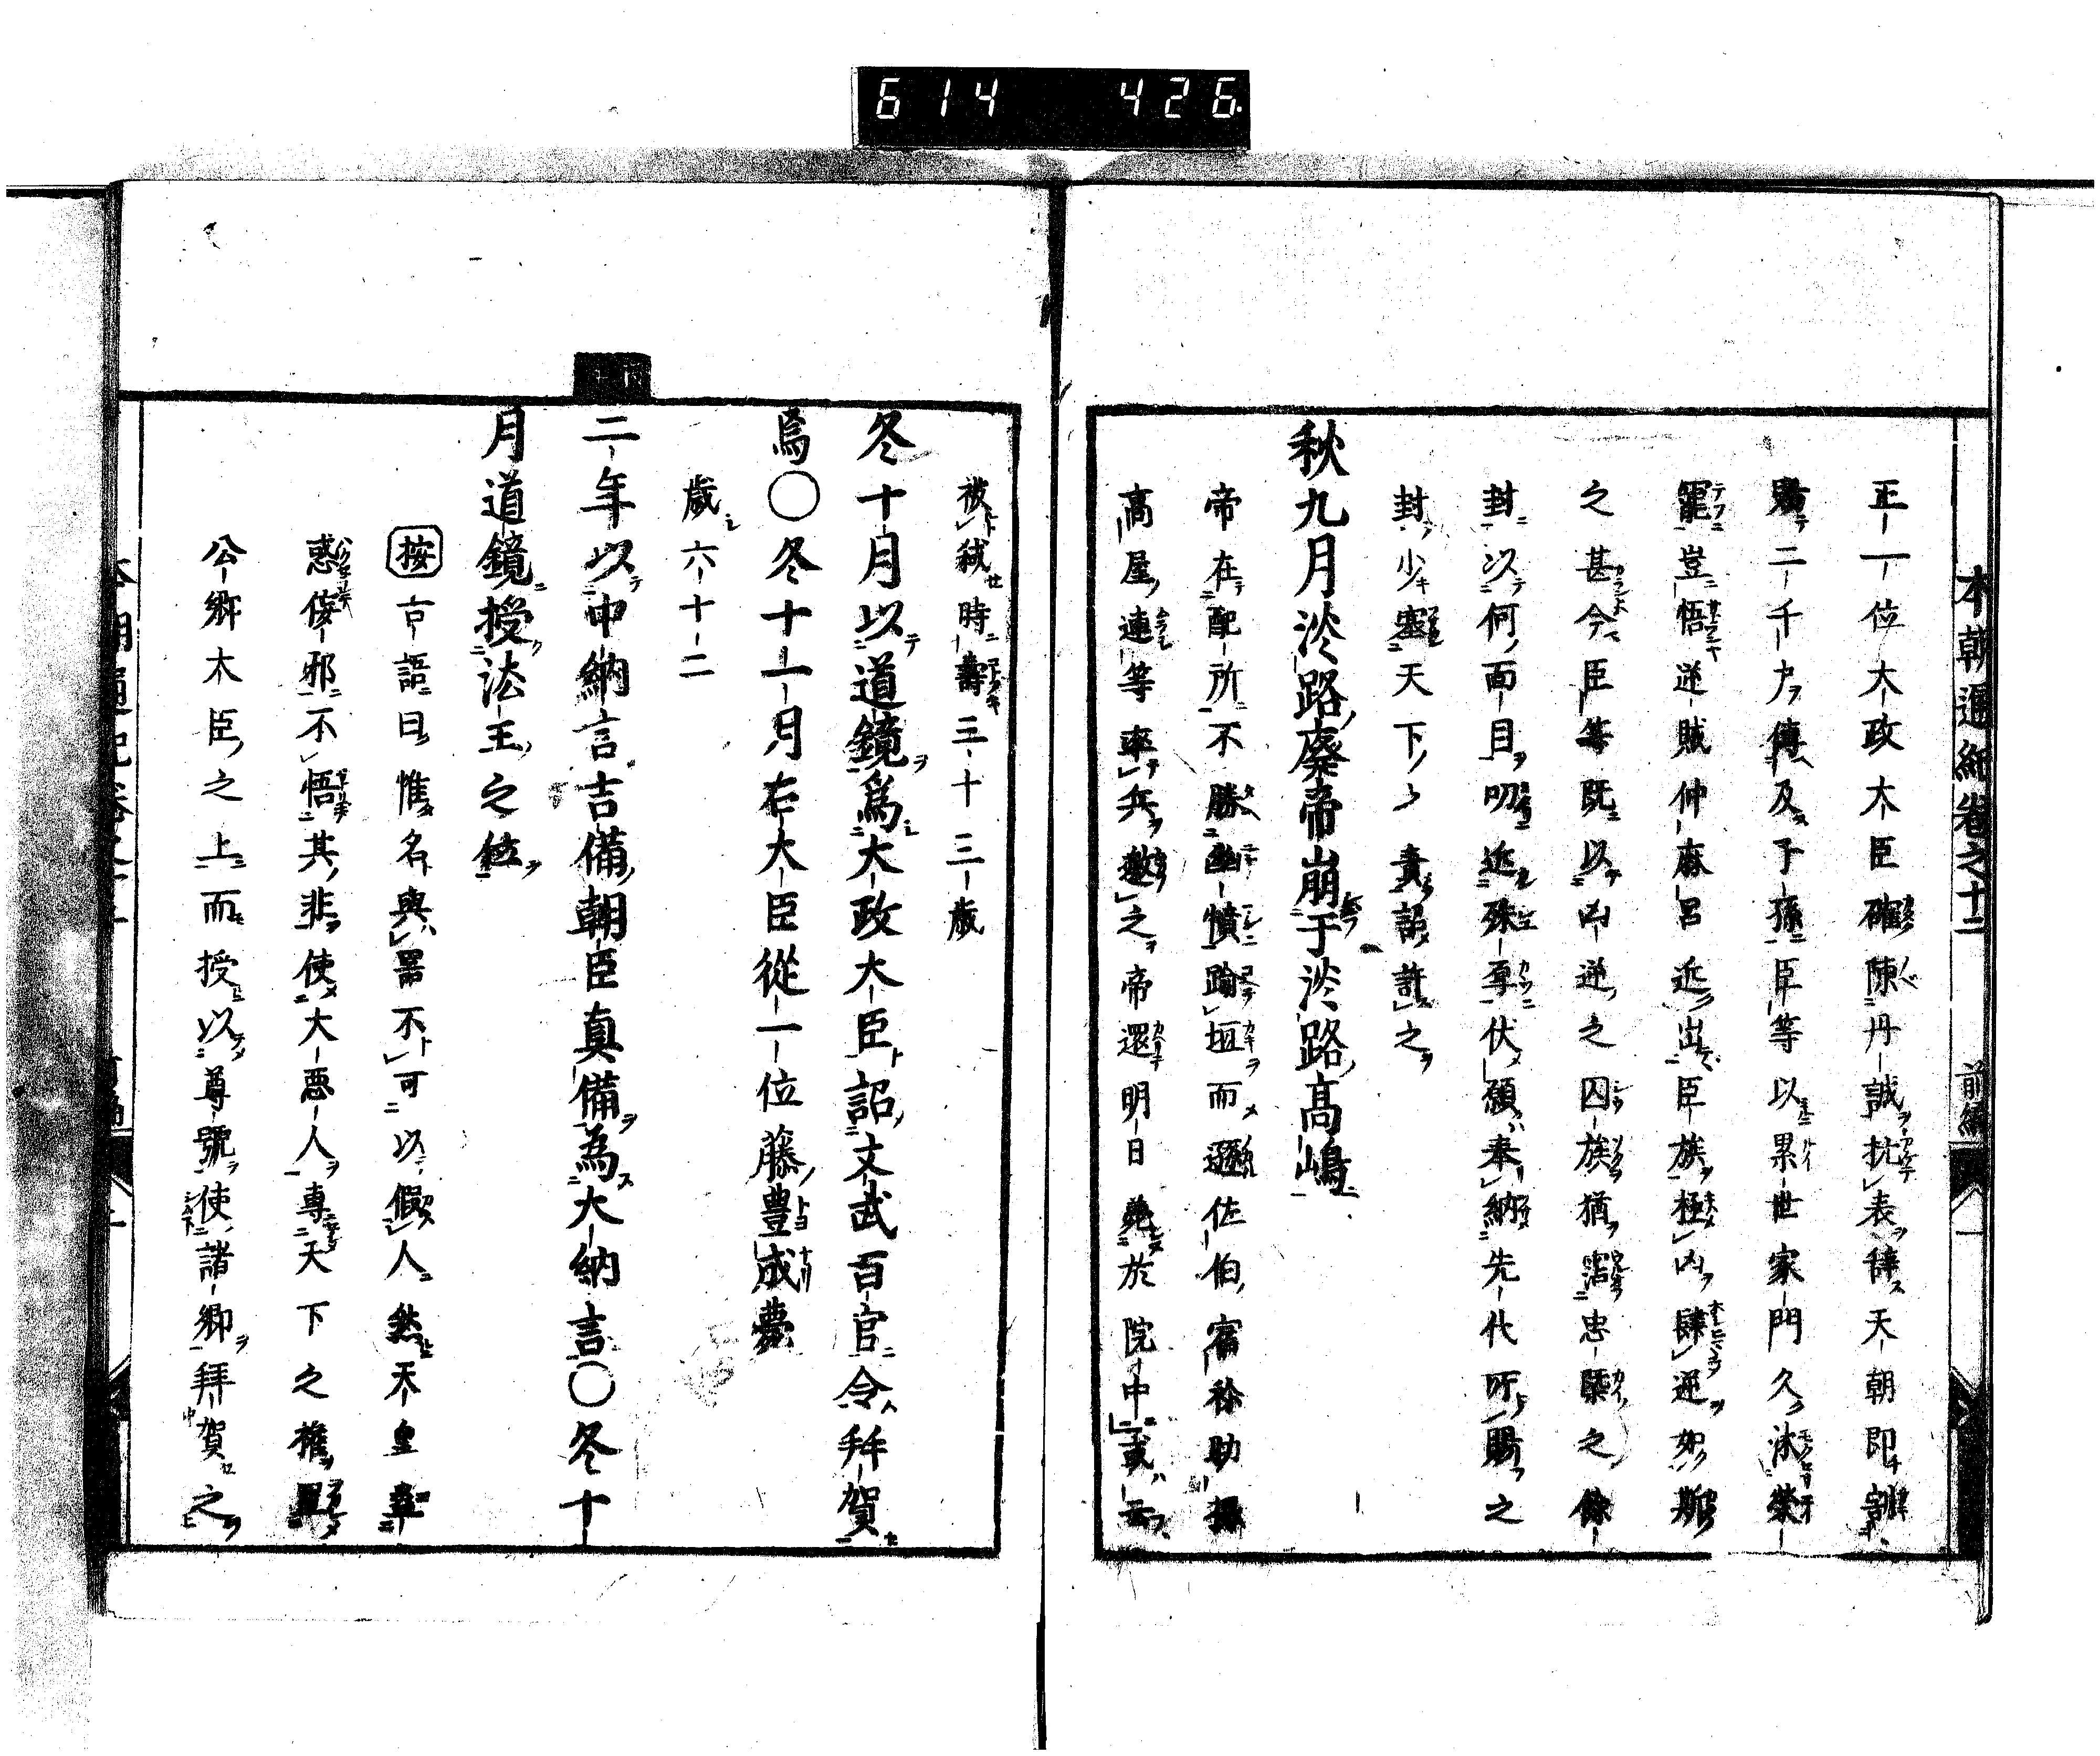 614 426
本朝通紀卷之十二 前編 一
正一位大政大臣確陳丹誠抗表辭天朝即訓
賜二千戸傳及子孫臣等以累世家門久沐榮
寵豈悟逆賊仲麻呂近出臣族極凶肆逆如斯
之甚今臣等既以凶逆之囚族猶霑忠槩之餘
封以何面目叨近殊尋伏願奉納先代所賜之
封少塞天下之責詔許之
秋九月淡路廢帝崩于淡路高嶋
帝在配所不勝幽憤踰垣而遁佐伯宿祢助
高屋連等率兵邀之帝還明日薨於院中或云
被弑時壽三十三歲
冬十月以道鏡爲大政大臣詔文武百官令拜賀
焉〇冬十一月右大臣從一位藤豊成薨
歲六十二
二年以中納言吉備朝臣真備為大納言〇冬十
月道鏡授法王之位
按古語曰惟名與器不可以假人然天皇
惑侫邪不悟其非使大惡人專天下之權
公卿大臣之上而授以尊號使諸卿拜賀之